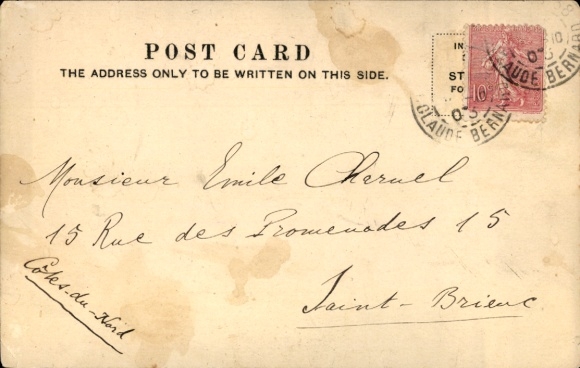 POST CARD
THE ADDRESS ONLY TO BE WRITTEN ON THIS SIDE.
IN
ST
FO
10c
CLAUDE BERNARD
CLAUDE BERNA
Monsieur Emile Charuel
15 Rue des Promenades 15
Saint-Brieuc
Côtes-du-Nord